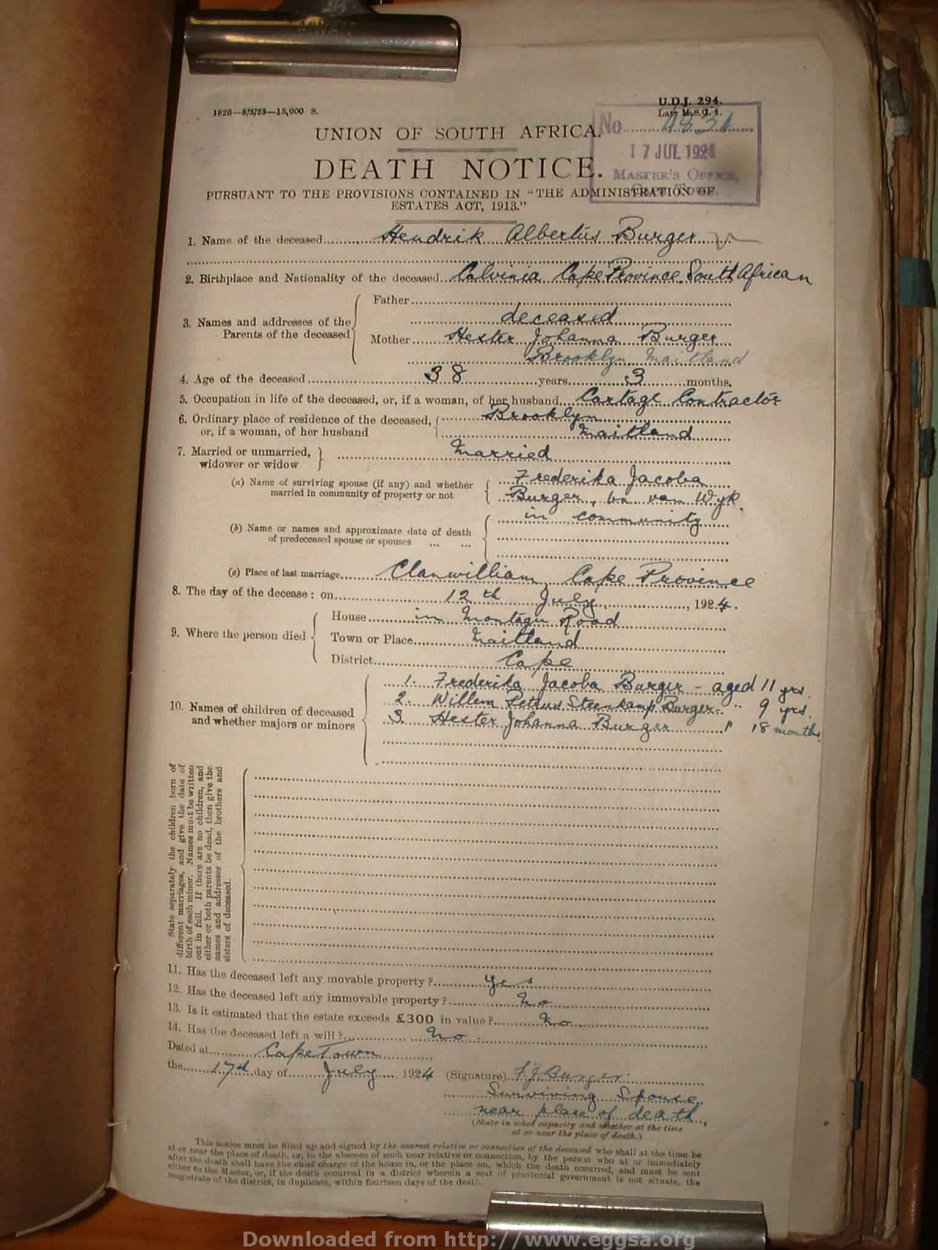 1826—8/3/23—15,000 S.
U.D.J. 294.
Late M.S.O. 1.
No 4831
17 JUL 1924
MASTER'S OFFICE,
UNION OF SOUTH AFRICA.
DEATH NOTICE.
PURSUANT TO THE PROVISIONS CONTAINED IN "THE ADMINISTRATION OF
ESTATES ACT, 1913."
1. Name of the deceased Hendrik Albertus Burger
2. Birthplace and Nationality of the deceased Calvinia Cape Province. South African
3. Names and addresses of the Parents of the deceased
Father
deceased
Mother Hester Johanna Burger
Brooklyn Maitland
4. Age of the deceased 38 years 3 months.
5. Occupation in life of the deceased, or, if a woman, of her husband Cartage Contractor
6. Ordinary place of residence of the deceased, Brooklyn
or, if a woman, of her husband Maitland
7. Married or unmarried, widower or widow Married
(a) Name of surviving spouse (if any) and whether Frederika Jacoba
married in community of property or not Burger, bn van Wyk.
in community
(b) Name or names and approximate date of death
of predeceased spouse or spouses ... ...
(c) Place of last marriage Clanwilliam Cape Province
8. The day of the decease: on 12th July, 1924.
9. Where the person died
House in Montagu Road
Town or Place Maitland
District Cape
10. Names of children of deceased
and whether majors or minors
1. Frederika Jacoba Burger - aged 11 yrs.
2. Willem Petrus Steenkamp Burger " 9 yrs.
3. Hester Johanna Burger " 18 months
State separately the children born of
different marriages, and give the date of
birth of each minor. Names must be written
out in full. If there are no children, and
either or both parents be dead, then give the
names and addresses of the brothers and
sisters of deceased.
11. Has the deceased left any movable property? Yes
12. Has the deceased left any immovable property? No
13. Is it estimated that the estate exceeds £300 in value? No
14. Has the deceased left a will? No.
Dated at Cape Town
the 17th day of July 1924 (Signature) F J Burger
Surviving Spouse
near place of death,
(State in what capacity and whether at the time
at or near the place of death.)
This notice must be filled up and signed by the nearest relative or connection of the deceased who shall at the time be
at or near the place of death, or, in the absence of such near relative or connection, by the person who at or immediately
after the death shall have the chief charge of the house in, or the place on, which the death occurred, and must be sent
either to the Master, or, if the death occurred in a district wherein a seat of provincial government is not situate, the
magistrate of the district, in duplicate, within fourteen days of the death.
Downloaded from http://www.eggsa.org